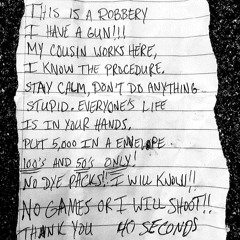 THIS IS A ROBBERY
I HAVE A GUN!!!
MY COUSIN WORKS HERE,
I KNOW THE PROCEDURE.
STAY CALM, DON'T DO ANYTHING
STUPID. EVERYONE'S LIFE
IS IN YOUR HANDS.
PUT 5,000 IN A ENVELOPE.
100'S AND 50'S ONLY!
NO DYE PACKS!! I WILL KNOW!!!
NO GAMES OR I WILL SHOOT!!
THANK YOU 40 SECONDS